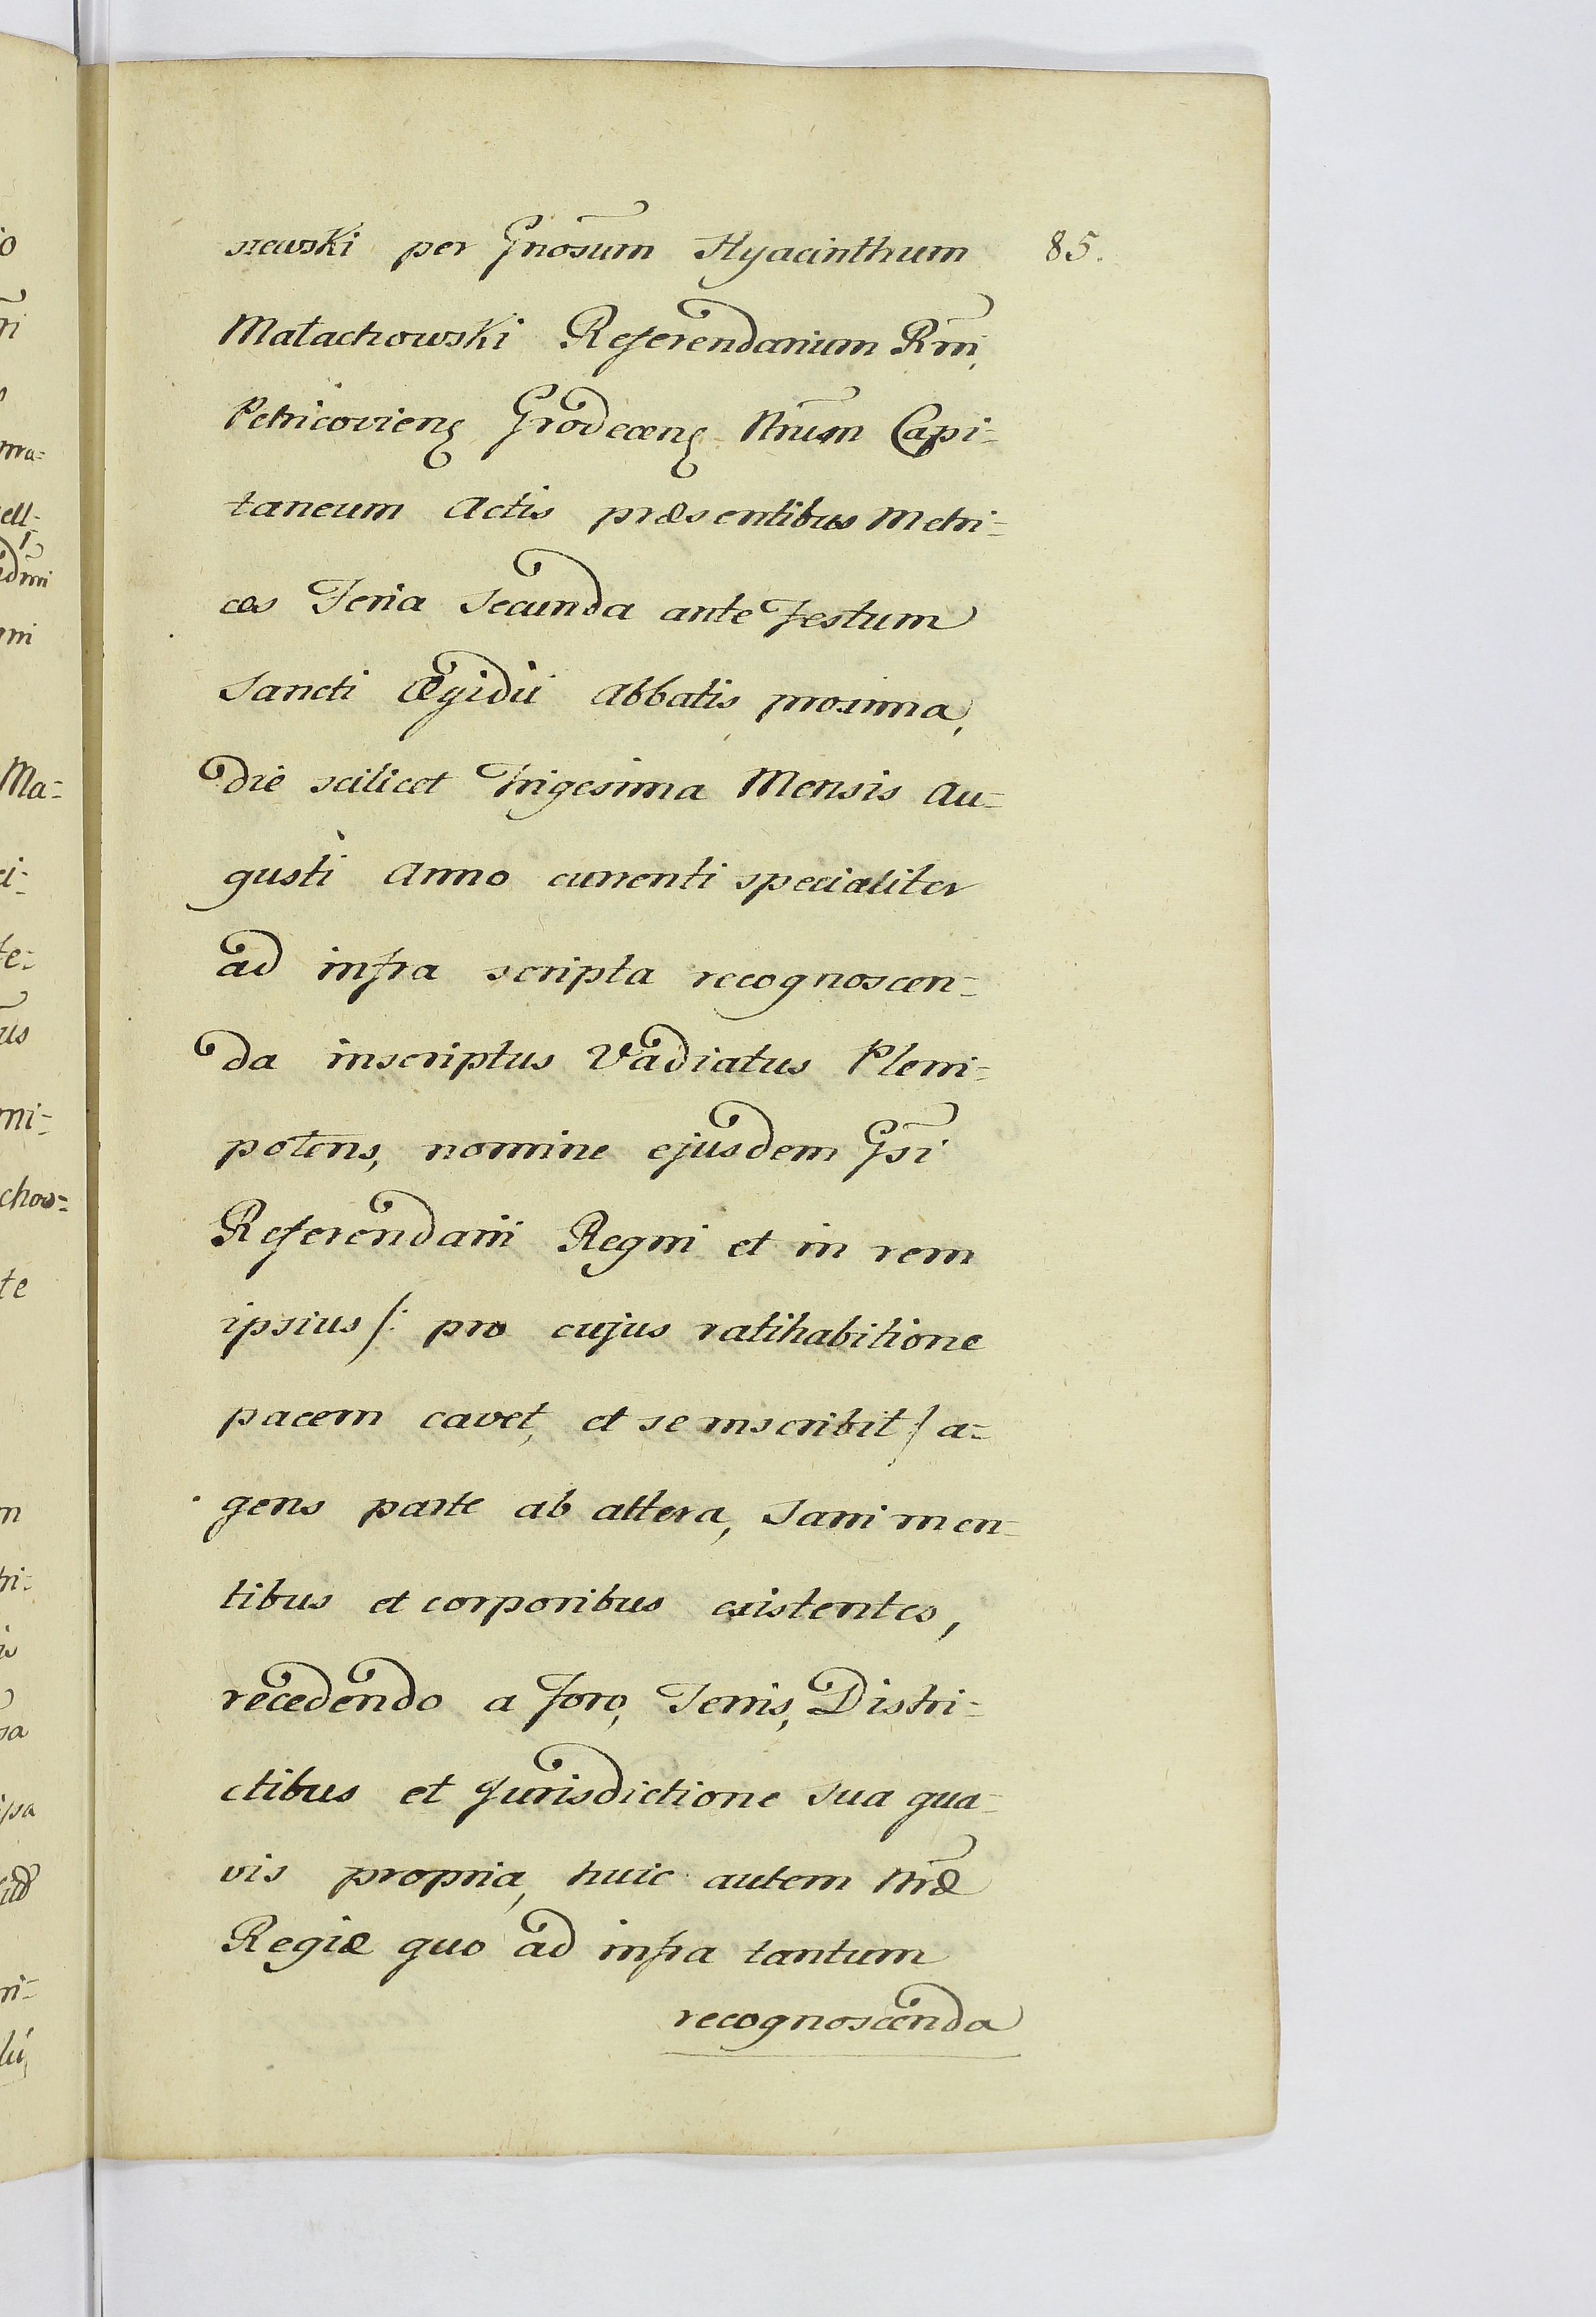 szewski per Gnosum Hyacinthum 85.
Małachowski Referendarium Rni,
Petricovieng Grodecæng Nrum Capi=
taneum Actis præsentibus Metri=
ces Feria Secunda ante Festum
Sancti Ægidii Abbatis proxima,
die scilicet Trigesima Mensis Au=
gusti Anno currenti specialiter
ad infra scripta recognoscen=
da inscriptus Vadiatus Pleni=
potens, nomine ejusdem Gsi
Referendarii Regni et in rem
ipsius /: pro cujus ratihabitione
pacem cavet, et se inscribit / a=
gens parte ab altera, Sani men=
tibus et corporibus existentes,
recedendo a Foro, Terris, Distri=
ctibus et Jurisdictione sua qua=
vis propria, huic autem Nræ
Regiæ quo ad infra tantum
recognoscenda